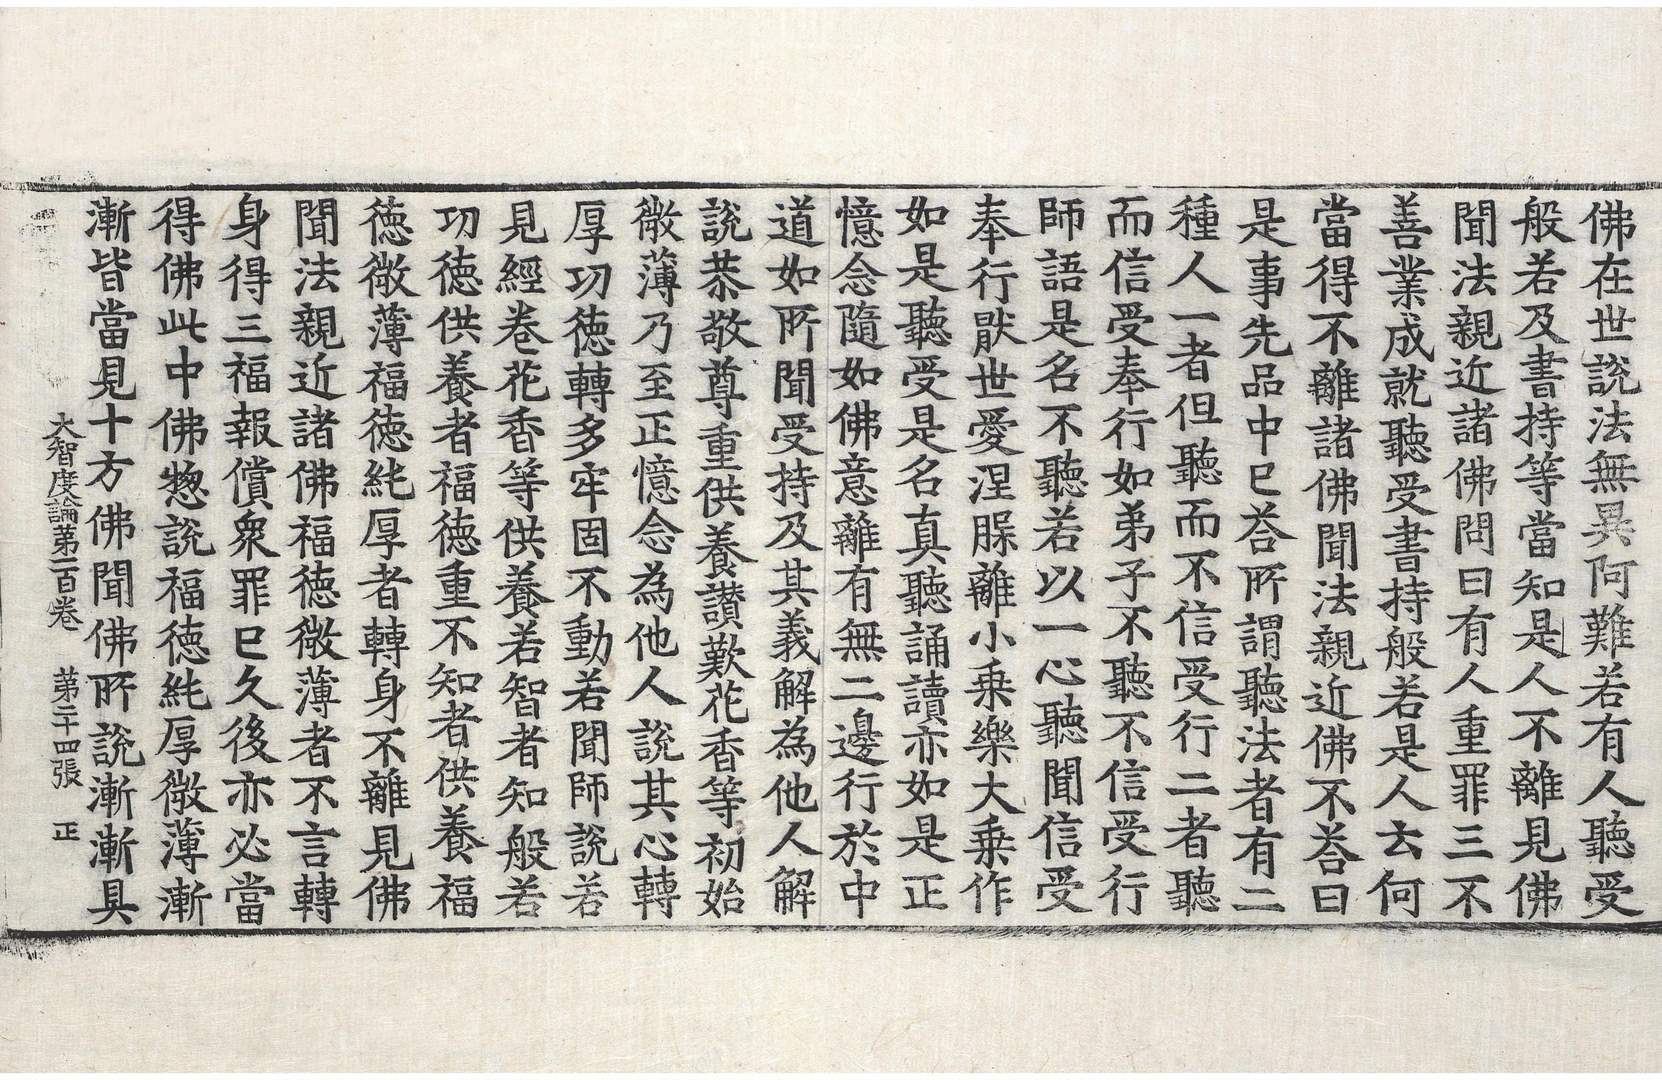 佛在世說法無異阿難若有人聽受
般若及書持等當知是人不離見佛
聞法親近諸佛問曰有人重罪三不
善業成就聽受書持般若是人去何
當得不離諸佛聞法親近佛不荅曰
是事先品中已荅所謂聽法者有二
種人一者但聽而不信受行二者聽
而信受奉行如弟子不聽不信受行
師語是名不聽若以一心聽聞信受
奉行厭世愛涅槃離小乗樂大乗作
如是聽受是名真聽誦讀亦如是正
憶念隨如佛意離有無二邊行於中
道如所聞受持及其義解為他人解
說恭敬尊重供養讃歎花香等初始
微薄乃至正憶念為他人說其心轉
厚功德轉多牢固不動若聞師說若
見經卷花香等供養若智者知般若
功德供養者福德重不知者供養福
德微薄福德純厚者轉身不離見佛
聞法親近諸佛福德微薄者不言轉
身得三福報償衆罪已久後亦必當
得佛此中佛惣說福德純厚微薄漸
漸皆當見十方佛聞佛所說漸漸具
大智度論苐一百卷　苐二十四張　正